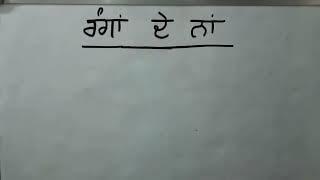 ਰੰਗਾਂ ਦੇ ਨਾਂ